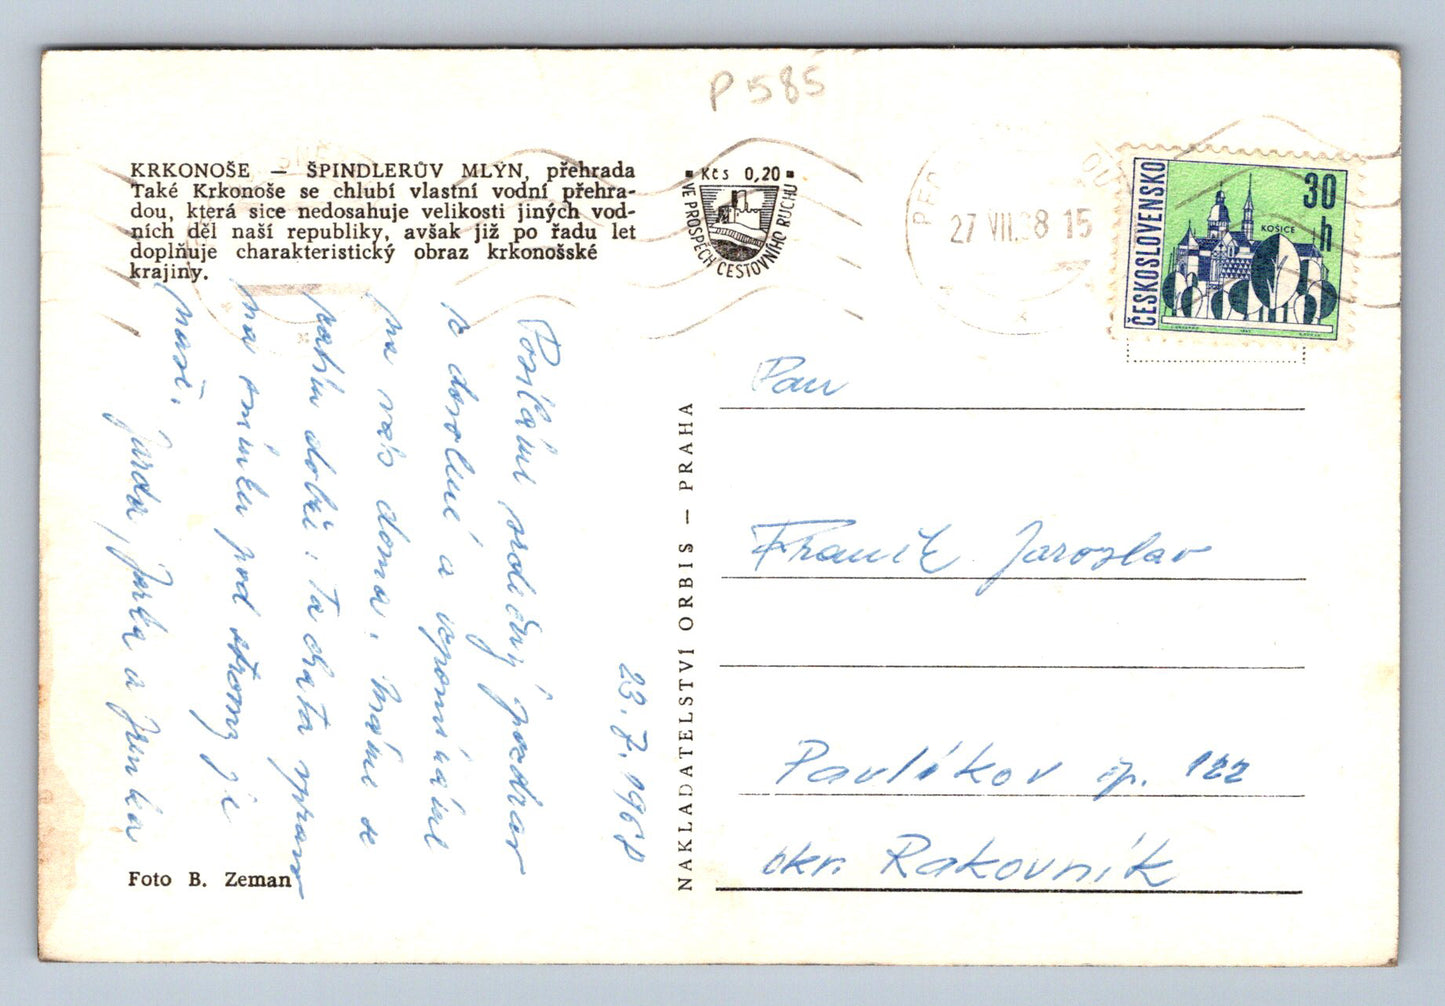 P 585
KRKONOŠE — ŠPINDLERŮV MLÝN, přehrada
Také Krkonoše se chlubí vlastní vodní přehra-
dou, která sice nedosahuje velikosti jiných vod-
ních děl naší republiky, avšak již po řadu let
doplňuje charakteristický obraz krkonošské
krajiny.
Kčs 0,20
VE PROSPĚCH CESTOVNÍHO RUCHU
27 VII. 8 15
ČESKOSLOVENSKO
30
h
KOŠICE
23. 7. 1968
Posíláme srdečný pozdrav
z dovolené a vzpomínáme
na vás doma. Máme se
zatím dobře. Ta chata vpravo
na snímku pod stromy je
naše.
Jarda, Jarka a Jirinka
Foto B. Zeman
NAKLADATELSTVÍ ORBIS — PRAHA
Pan
Jaroslav
Pavlíkov čp. 122
okr. Rakovník